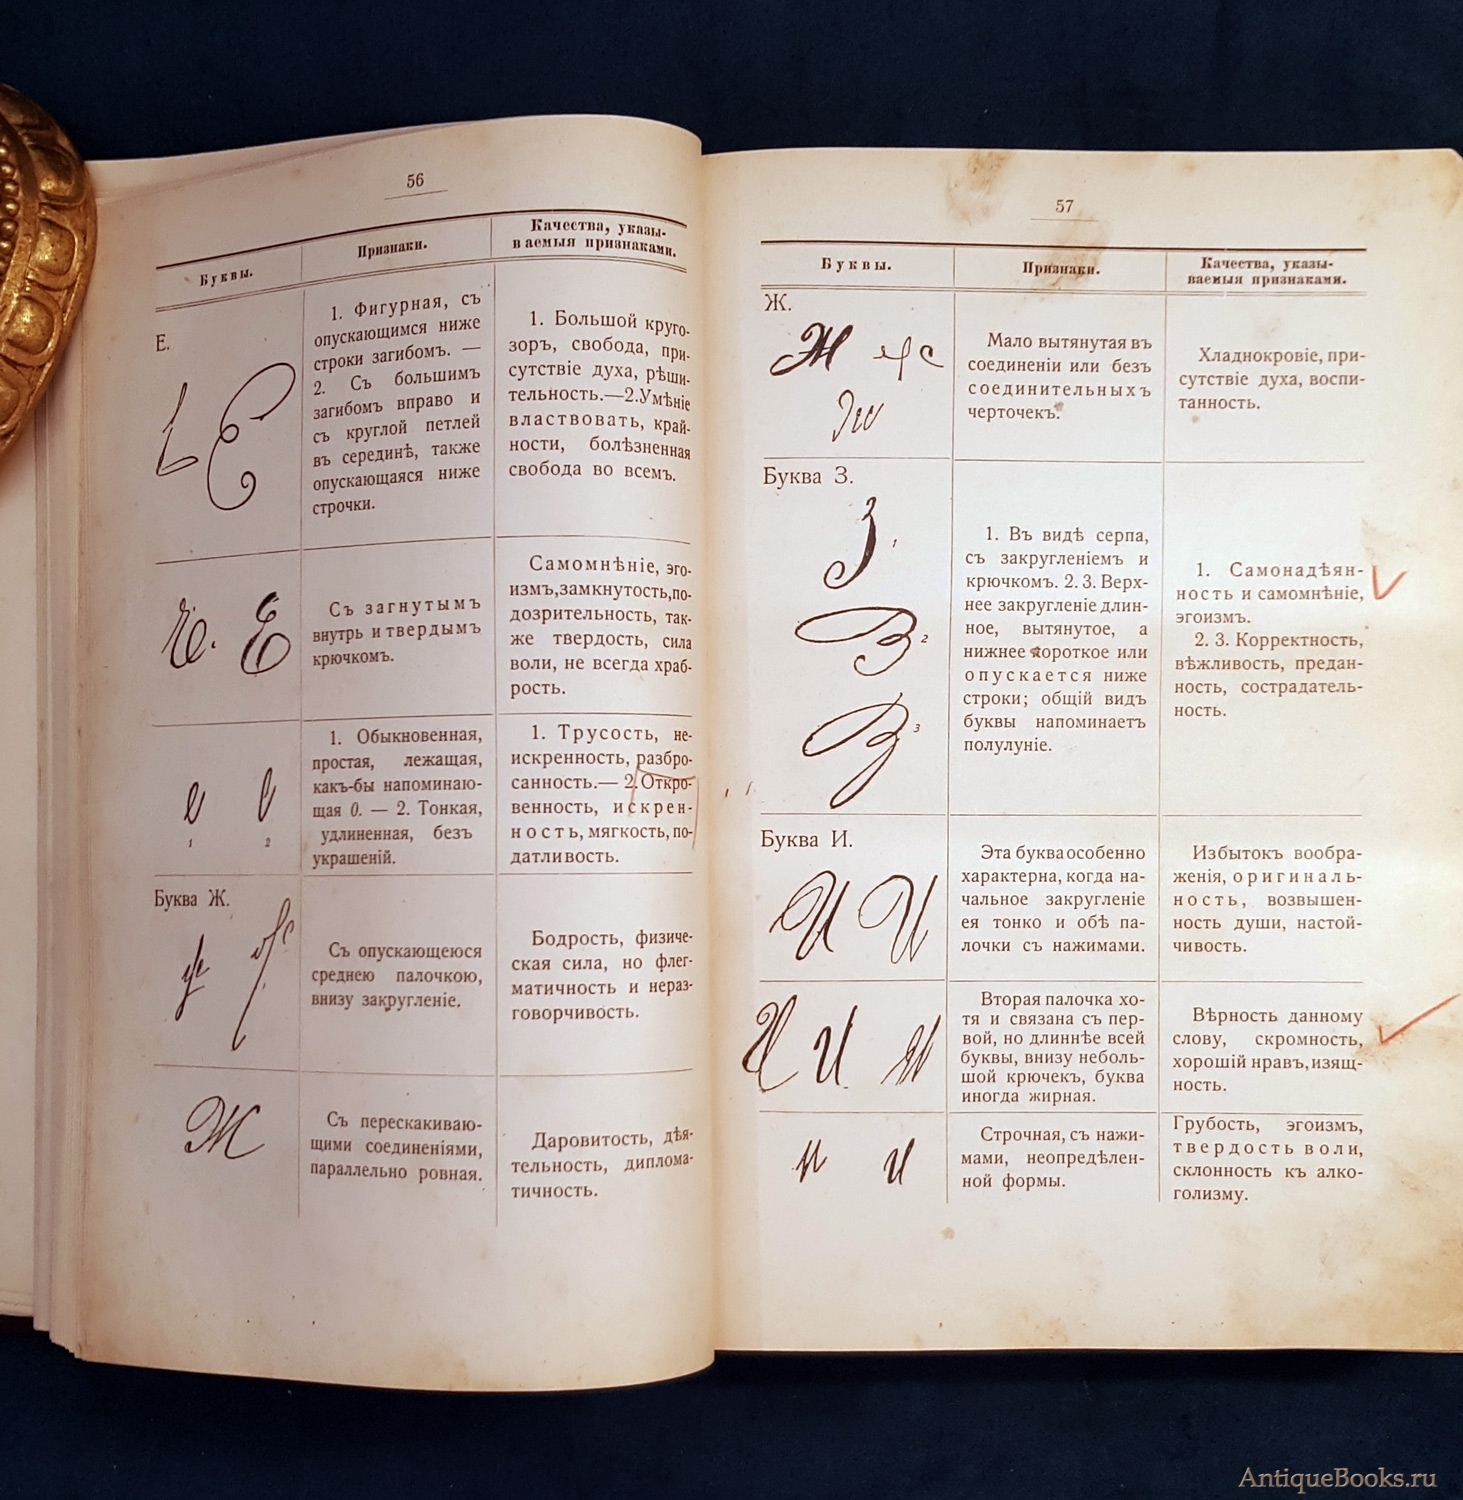 56
Буквы.
Признаки.
Качества, указы-
ваемыя признаками.
Е.
1. Фигурная, съ
опускающимся ниже
строки загибомъ. —
2. Съ большимъ
загибомъ вправо и
съ круглой петлей
въ серединѣ, также
опускающаяся ниже
строчки.
1. Большой круго-
зоръ, свобода, при-
сутствіе духа, рѣши-
тельность.—2.Умѣніе
властвовать, край-
ности, болѣзненная
свобода во всемъ.
Съ загнутымъ
внутрь и твердымъ
крючкомъ.
Самомнѣніе, эго-
измъ,замкнутость,по-
дозрительность, так-
же твердость, сила
воли, не всегда храб-
рость.
1
2
1. Обыкновенная,
простая, лежащая,
какъ-бы напоминаю-
щая 0. — 2. Тонкая,
удлиненная, безъ
украшеній.
1. Трусость, не-
искренность, разбро-
санность.— 2.Откро-
венность, искрен-
ность, мягкость, по-
датливость.
Буква Ж.
Съ опускающеюся
среднею палочкою,
внизу закругленіе.
Бодрость, физиче-
ская сила, но флег-
матичность и нераз-
говорчивость.
Ж
Съ перескакиваю-
щими соединеніями,
параллельно ровная.
Даровитость, дѣя-
тельность, диплома-
тичность.
57
Буквы.
Признаки.
Качества, указы-
ваемыя признаками.
Ж.
Мало вытянутая въ
соединеніи или безъ
соединительныхъ
черточекъ.
Хладнокровіе, при-
сутствіе духа, воспи-
танность.
Буква З.
З 1
З 2
З 3
1. Въ видѣ серпа,
съ закругленіемъ и
крючкомъ. 2. 3. Верх-
нее закругленіе длин-
ное, вытянутое, а
нижнее короткое или
опускается ниже
строки; общій видъ
буквы напоминаетъ
полулуніе.
1. Самонадѣян-
ность и самомнѣніе,
эгоизмъ.
2. 3. Корректность,
вѣжливость, предан-
ность, сострадатель-
ность.
Буква И.
И И
Эта буква особенно
характерна, когда на-
чальное закругленіе
ея тонко и обѣ па-
лочки съ нажимами.
Избытокъ вообра-
женія, оригиналь-
ность, возвышен-
ность души, настой-
чивость.
И И И
Вторая палочка хо-
тя и связана съ пер-
вой, но длиннѣе всей
буквы, внизу неболь-
шой крючекъ, буква
иногда жирная.
Вѣрность данному
слову, скромность,
хорошій нравъ, изящ-
ность.
и и
Строчная, съ нажи-
мами, неопредѣлен-
ной формы.
Грубость, эгоизмъ,
твердость воли,
склонность къ алко-
голизму.
AntiqueBooks.ru